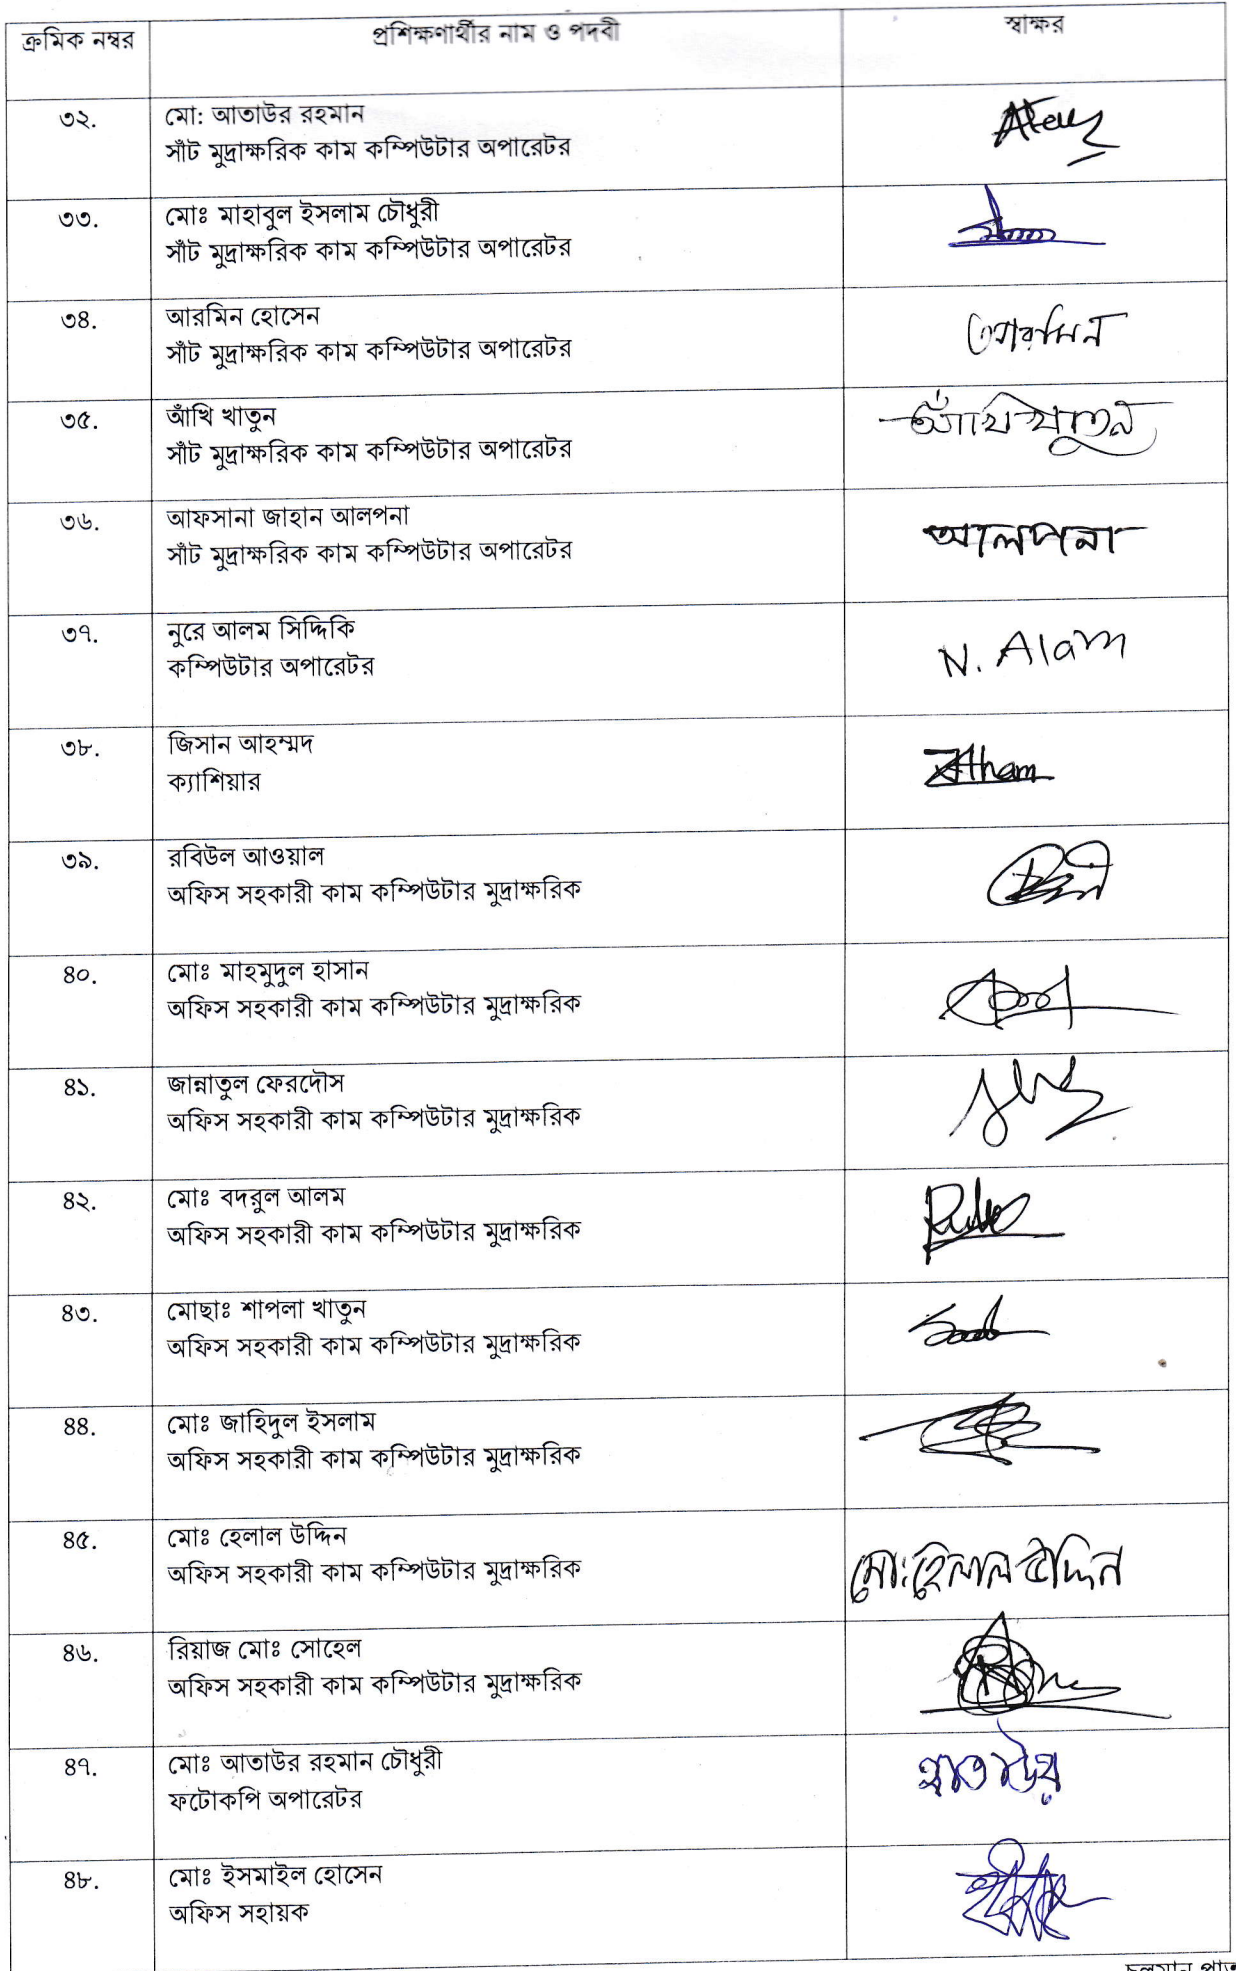 ক্রমিক নম্বর প্রশিক্ষণার্থীর নাম ও পদবী স্বাক্ষর
৩২. মো: আতাউর রহমান
সাঁট মুদ্রাক্ষরিক কাম কম্পিউটার অপারেটর
৩৩. মোঃ মাহাবুল ইসলাম চৌধুরী
সাঁট মুদ্রাক্ষরিক কাম কম্পিউটার অপারেটর
৩৪. আরমিন হোসেন আরমিন
সাঁট মুদ্রাক্ষরিক কাম কম্পিউটার অপারেটর
৩৫. আঁখি খাতুন আঁখি খাতুন
সাঁট মুদ্রাক্ষরিক কাম কম্পিউটার অপারেটর
৩৬. আফসানা জাহান আলপনা আলপনা
সাঁট মুদ্রাক্ষরিক কাম কম্পিউটার অপারেটর
৩৭. নুরে আলম সিদ্দিকি N. Alam
কম্পিউটার অপারেটর
৩৮. জিসান আহম্মদ
ক্যাশিয়ার
৩৯. রবিউল আওয়াল
অফিস সহকারী কাম কম্পিউটার মুদ্রাক্ষরিক
৪০. মোঃ মাহমুদুল হাসান
অফিস সহকারী কাম কম্পিউটার মুদ্রাক্ষরিক
৪১. জান্নাতুল ফেরদৌস
অফিস সহকারী কাম কম্পিউটার মুদ্রাক্ষরিক
৪২. মোঃ বদরুল আলম
অফিস সহকারী কাম কম্পিউটার মুদ্রাক্ষরিক
৪৩. মোছাঃ শাপলা খাতুন
অফিস সহকারী কাম কম্পিউটার মুদ্রাক্ষরিক
৪৪. মোঃ জাহিদুল ইসলাম
অফিস সহকারী কাম কম্পিউটার মুদ্রাক্ষরিক
৪৫. মোঃ হেলাল উদ্দিন মো: হেলাল উদ্দিন
অফিস সহকারী কাম কম্পিউটার মুদ্রাক্ষরিক
৪৬. রিয়াজ মোঃ সোহেল
অফিস সহকারী কাম কম্পিউটার মুদ্রাক্ষরিক
৪৭. মোঃ আতাউর রহমান চৌধুরী আতাউর
ফটোকপি অপারেটর
৪৮. মোঃ ইসমাইল হোসেন
অফিস সহায়ক